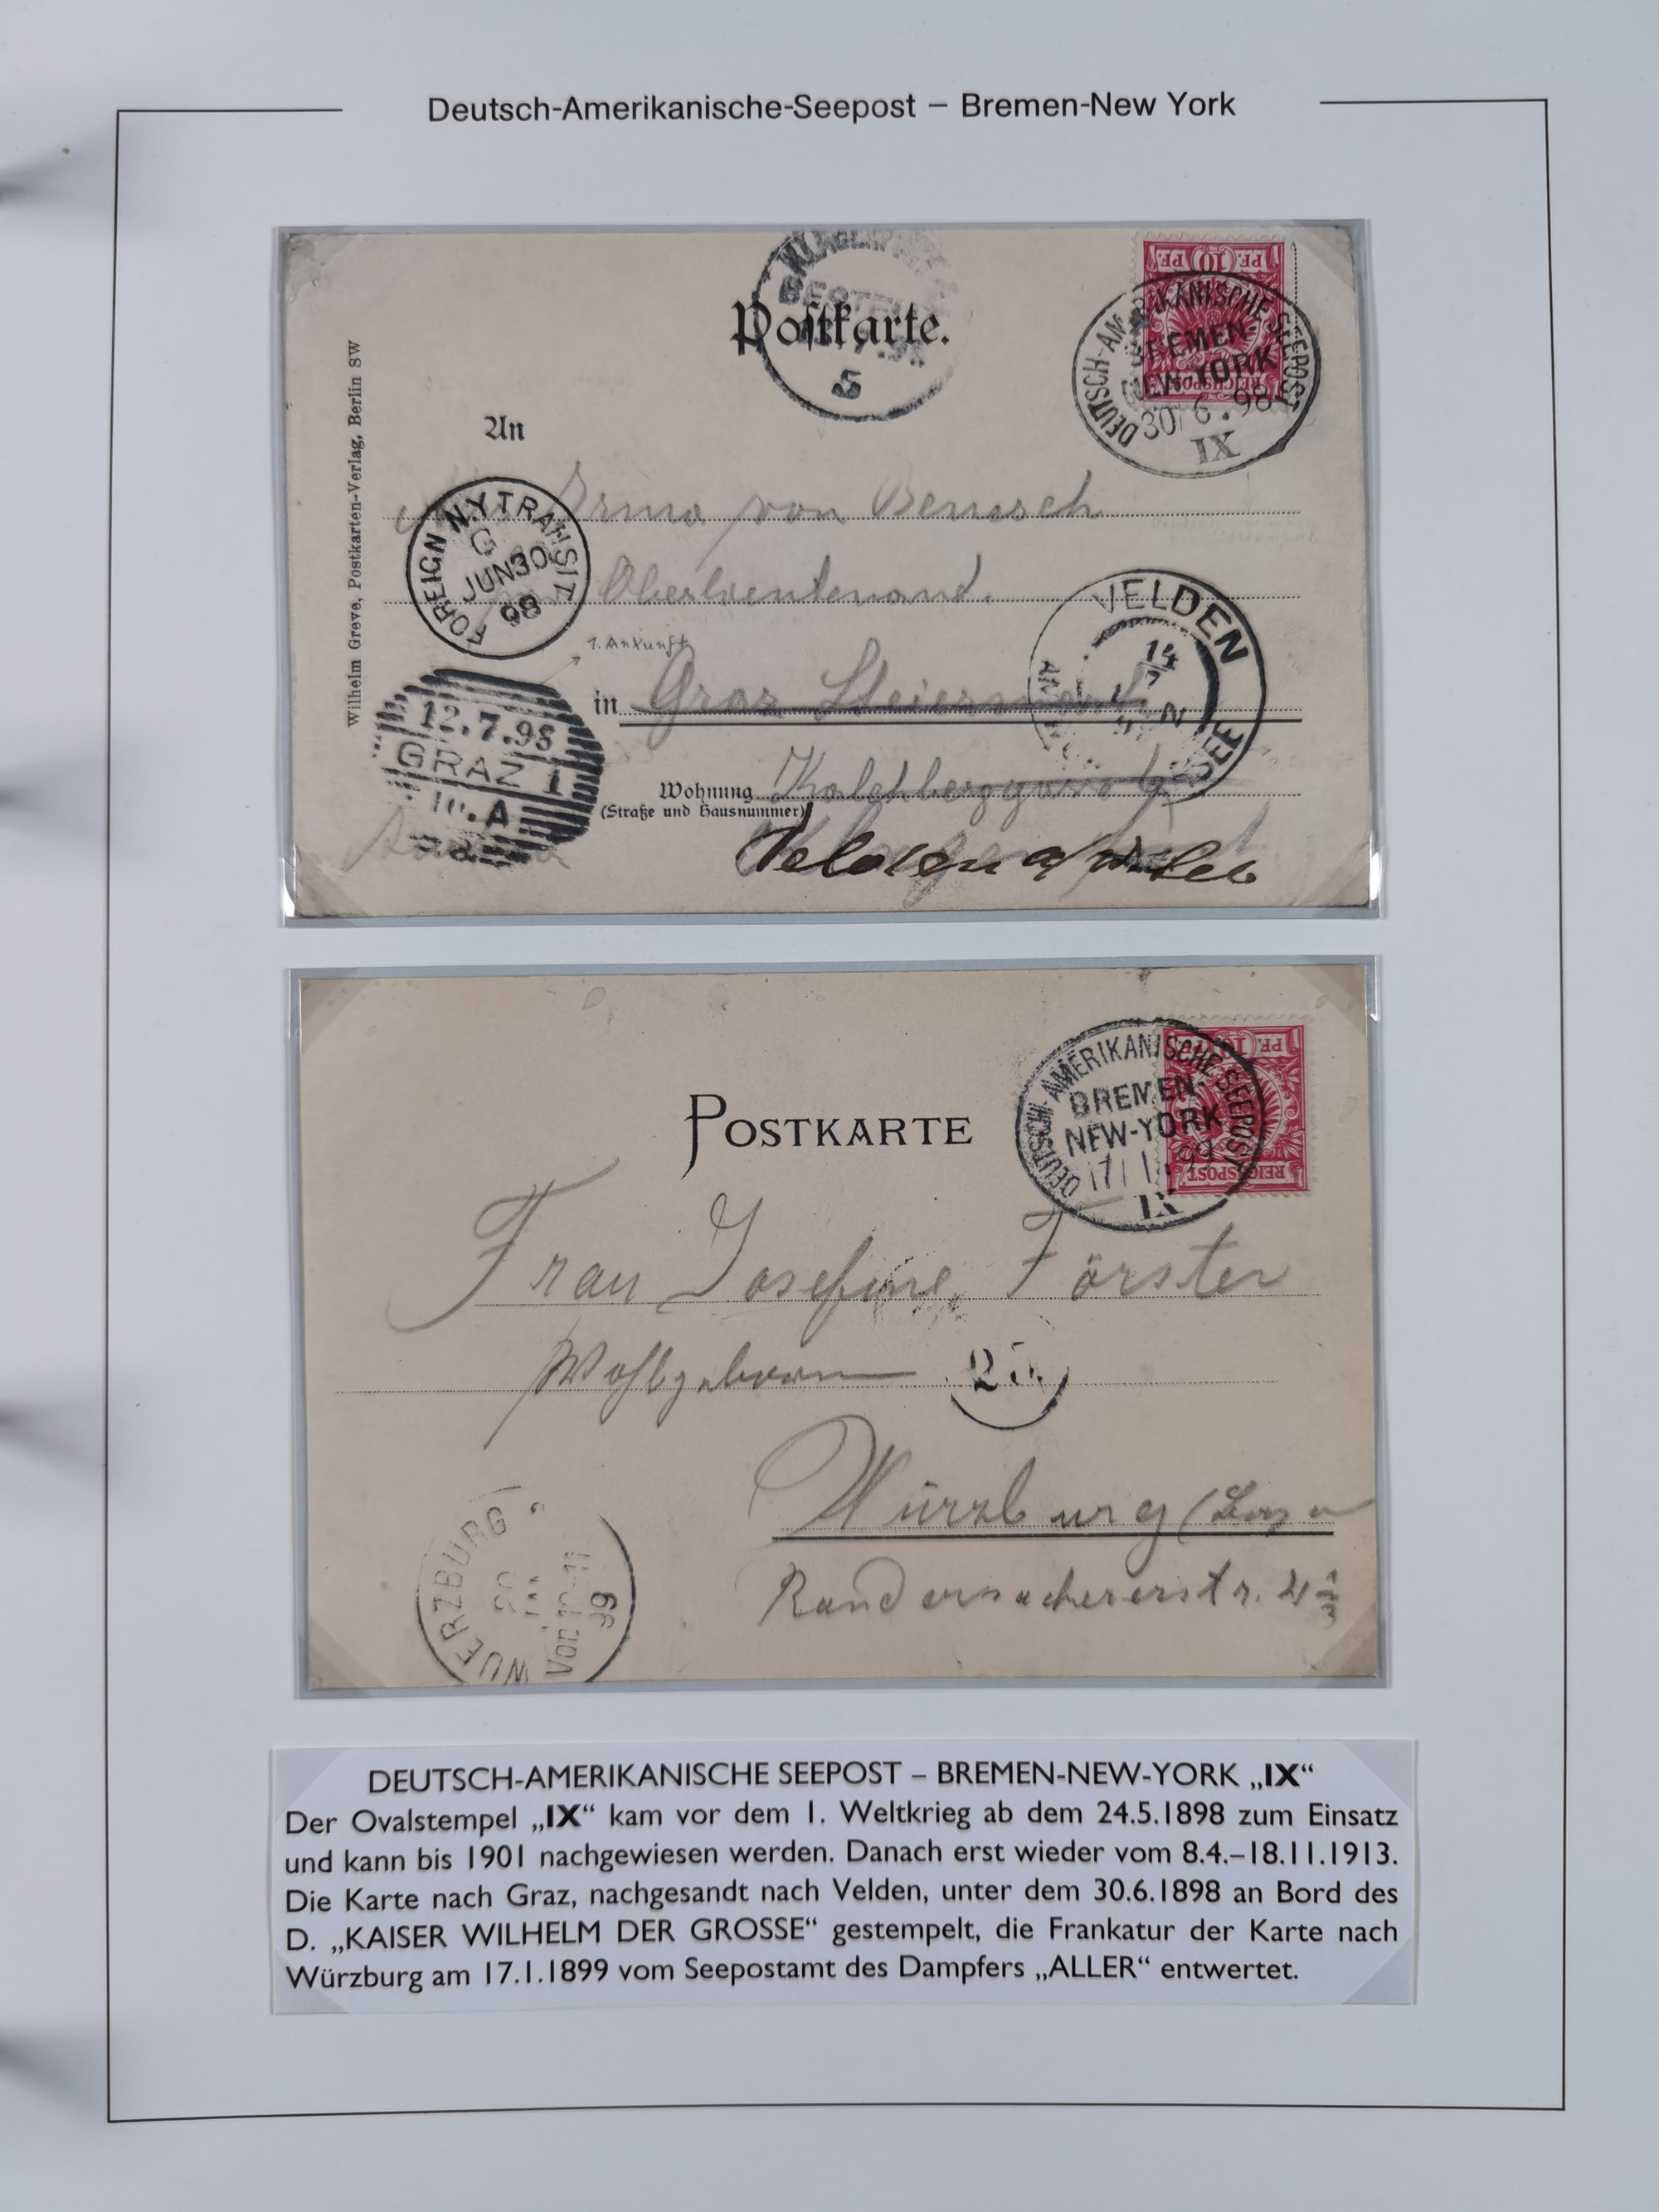 Deutsch-Amerikanische-Seepost – Bremen-New York
Postkarte.
BESTELLT
5
PF 10 PF
REICHSPOST
DEUTSCH-AMERIKANISCHE SEEPOST
BREMEN-
NEW-YORK
30/6.98
IX
Wilhelm Greve, Postkarten-Verlag, Berlin SW
An
Irma von Benesch
FOREIGN N.Y. TRANSIT
G
JUN 30
98
Oberlieutenant.
1. Ankunft
in Graz Steiermark
VELDEN
14
7
N
SEE
12.7.98
GRAZ 1
10.A
Wohnung
(Straße und Hausnummer)
Velden a/W. See
POSTKARTE
PF 10 PF
REICHSPOST
DEUTSCH-AMERIKANISCHE SEEPOST
BREMEN-
NEW-YORK
17/1.99
IX
Frau Josefine Förster
Wohlgeboren
25
Würzburg
Randersackererstr.
WUERZBURG
JAN
Vor 10-11
99
DEUTSCH-AMERIKANISCHE SEEPOST – BREMEN-NEW-YORK „IX“
Der Ovalstempel „IX“ kam vor dem 1. Weltkrieg ab dem 24.5.1898 zum Einsatz
und kann bis 1901 nachgewiesen werden. Danach erst wieder vom 8.4.–18.11.1913.
Die Karte nach Graz, nachgesandt nach Velden, unter dem 30.6.1898 an Bord des
D. „KAISER WILHELM DER GROSSE“ gestempelt, die Frankatur der Karte nach
Würzburg am 17.1.1899 vom Seepostamt des Dampfers „ALLER“ entwertet.